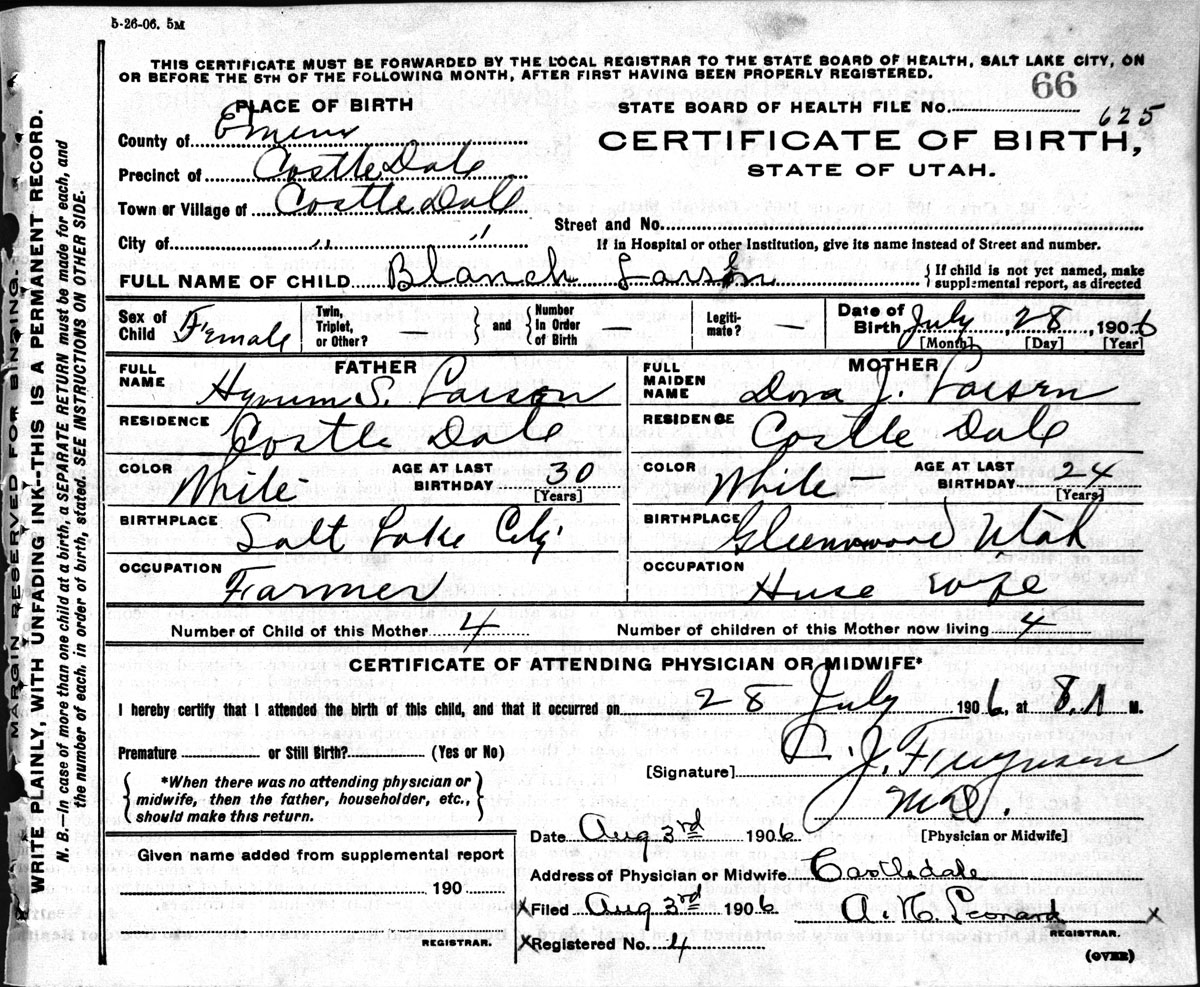 5-26-06. 5M
THIS CERTIFICATE MUST BE FORWARDED BY THE LOCAL REGISTRAR TO THE STATE BOARD OF HEALTH, SALT LAKE CITY, ON
OR BEFORE THE 5TH OF THE FOLLOWING MONTH, AFTER FIRST HAVING BEEN PROPERLY REGISTERED.
MARGIN RESERVED FOR BINDING.
WRITE PLAINLY, WITH UNFADING INK--THIS IS A PERMANENT RECORD.
N. B.—In case of more than one child at a birth, a SEPARATE RETURN must be made for each, and
the number of each, in order of birth, stated. SEE INSTRUCTIONS ON OTHER SIDE.
PLACE OF BIRTH
STATE BOARD OF HEALTH FILE No. 66
625
County of Emery
CERTIFICATE OF BIRTH,
STATE OF UTAH.
Precinct of Costle Dale
Town or Village of Costle Dale
Street and No.
City of " "
If in Hospital or other Institution, give its name instead of Street and number.
FULL NAME OF CHILD Blanch Larson
{ If child is not yet named, make
supplemental report, as directed
Sex of Child Female
Twin, Triplet, or Other? — } and { Number In Order of Birth
Legiti-mate? —
Date of Birth July 28 1906
[Month] [Day] [Year]
FATHER
MOTHER
FULL NAME Hyrum S. Larson
FULL MAIDEN NAME Dora J. Larsen
RESIDENCE Costle Dale
RESIDENCE Costle Dale
COLOR White AGE AT LAST BIRTHDAY 30 [Years]
COLOR White AGE AT LAST BIRTHDAY 24 [Years]
BIRTHPLACE Salt Lake City
BIRTHPLACE Gleenwood Utah
OCCUPATION Farmer
OCCUPATION Huse wife
Number of Child of this Mother 4
Number of children of this Mother now living 4
CERTIFICATE OF ATTENDING PHYSICIAN OR MIDWIFE*
I hereby certify that I attended the birth of this child, and that it occurred on 28 July 1906, at 8.A M.
Premature or Still Birth? (Yes or No)
{ *When there was no attending physician or
midwife, then the father, householder, etc.,
should make this return. }
[Signature] J. Ferguson
M.D.
[Physician or Midwife]
Date Aug 3rd 1906
Given name added from supplemental report
190
REGISTRAR.
Address of Physician or Midwife Castledale
X Filed Aug 3rd 1906 A. N. Leonard X
REGISTRAR.
X Registered No. 4
(OVER)